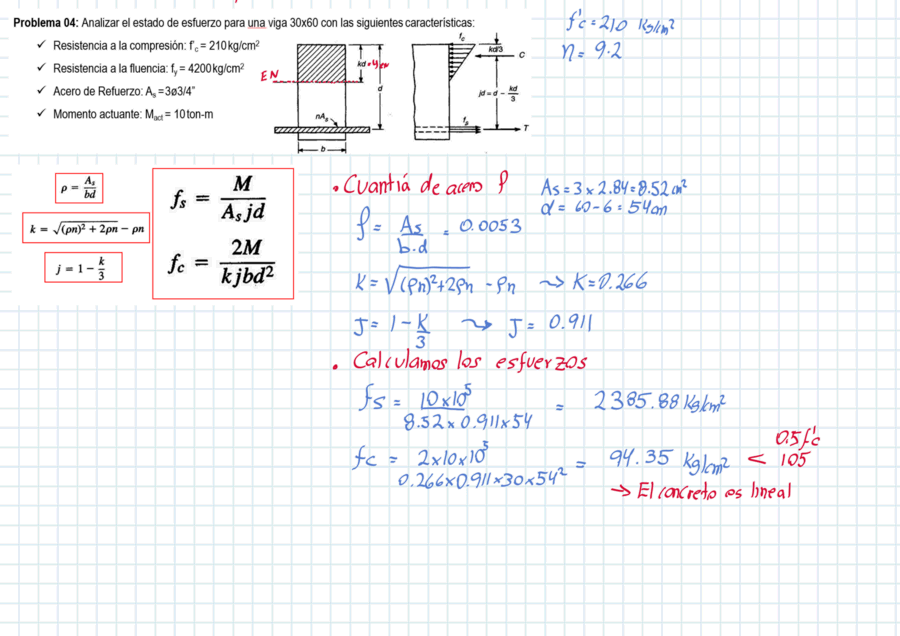 Problema 04: Analizar el estado de esfuerzo para una viga 30x60 con las siguientes características:
✓ Resistencia a la compresión: f'c = 210kg/cm²
✓ Resistencia a la fluencia: fy = 4200kg/cm²
✓ Acero de Refuerzo: As =3ø3/4"
✓ Momento actuante: Mact = 10ton-m
f'c = 210 Kg/cm²
n = 9.2
EN
kd
d
nAs
b
fc
kd/3
C
jd = d - kd/3
fs
T
ρ = As/bd
k = √((ρn)² + 2ρn) - ρn
j = 1 - k/3
fs = M/(As jd)
fc = 2M/(kjbd²)
• Cuantiá de acero ρ
As = 3 x 2.84 = 8.52 cm²
d = 60 - 6 = 54cm
ρ = As/(b.d) = 0.0053
K = √((ρn)²+2ρn) - ρn ⤳ K=0.266
J = 1 - K/3 ⤳ J = 0.911
• Calculamos los esfuerzos
fs = 10x10⁵/(8.52x0.911x54) = 2385.88 Kg/cm²
fc = 2x10x10⁵/(0.266x0.911x30x54²) = 94.35 Kg/cm² < 105
0.5f'c
→ El concreto es lineal